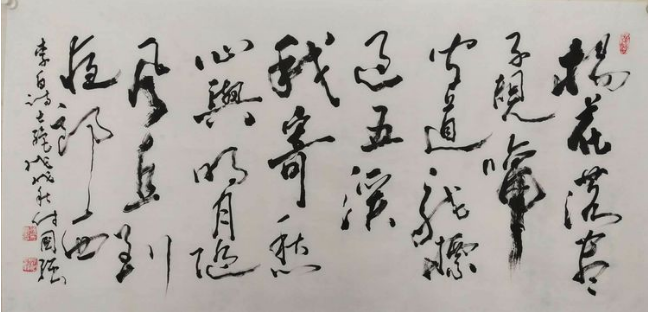 楊花落盡
子規啼
聞道龍標
過五溪
我寄愁
心與明月隨
風直到
夜郎西
李白詩戊戌秋付國强